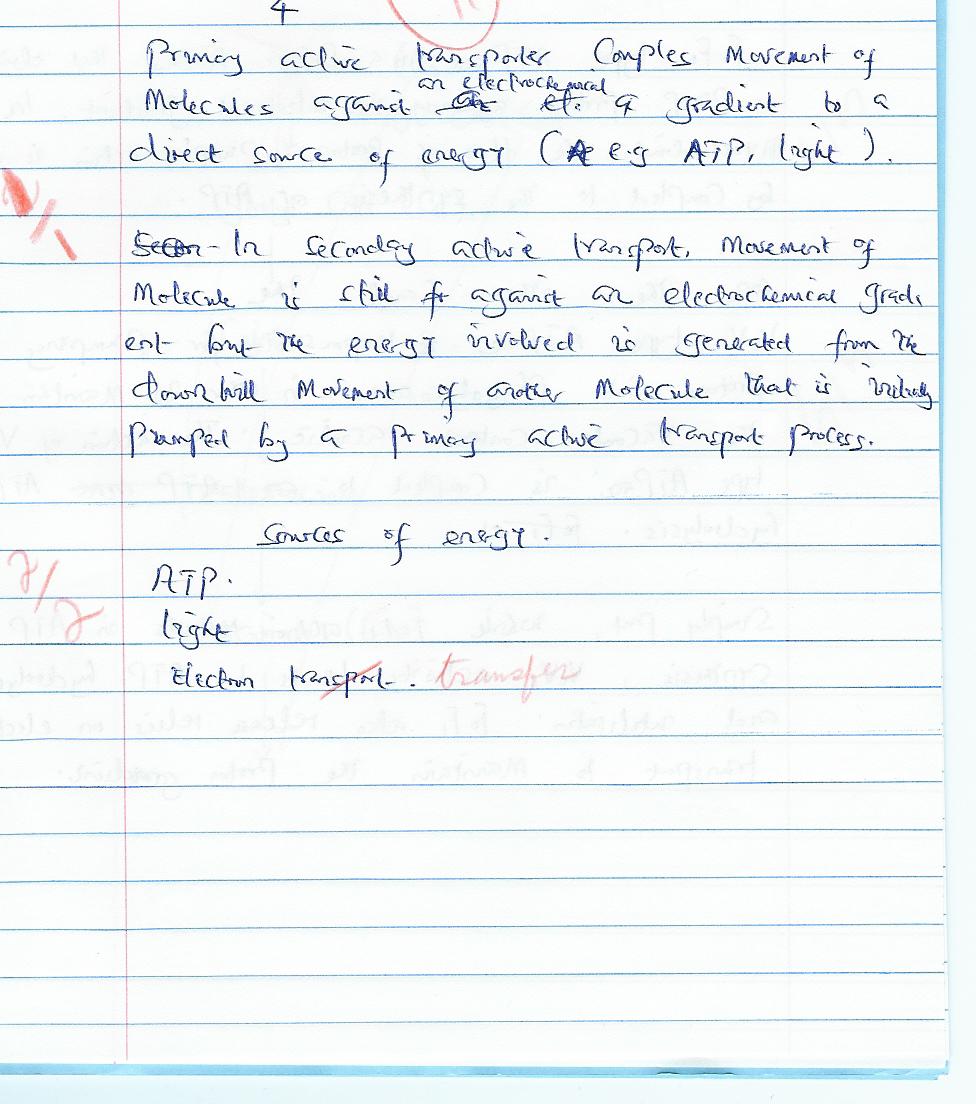 4
Primary active transporter Couples Movement of
an electrochemical
Molecules against a gradient to a
direct source of energy (e.g ATP, light).
1/1
- In Seconday active transport, Movement of
Molecule is still against an electrochemical gradi
ent but the energy involved is generated from the
downhill Movement of another Molecule that is initialy
pumped by a primary active transport process.
Sources of energy.
ATP.
2/2
light
Electron transport. transfer